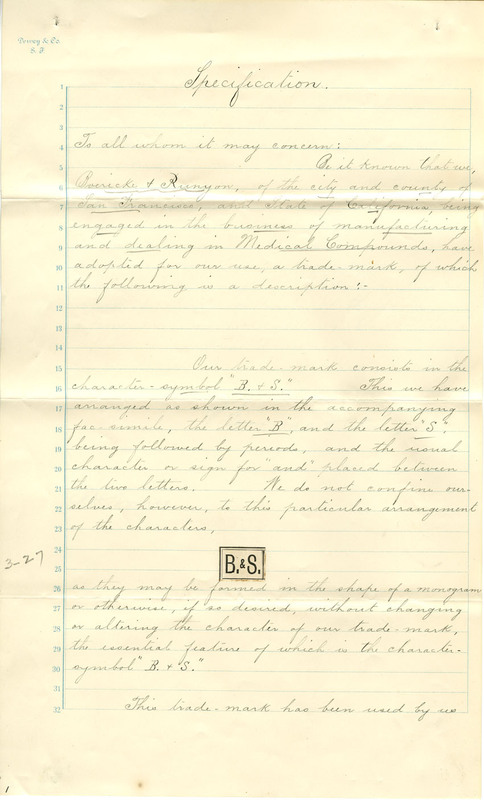 Dewey & Co.
S. F.
Specification.
To all whom it may concern:
Be it known that we,
& Runyon, of the city and county of
San Francisco, and State of California, being
engaged in the business of manufacturing
and dealing in Medical Compounds, have
adopted for our use, a trade-mark, of which
the following is a description:-
Our trade-mark consists in the
character-symbol "B. & S." This we have
arranged as shown in the accompanying
fac-simile, the letter "B", and the letter "S",
being followed by periods, and the usual
character or sign for "and" placed between
the two letters. We do not confine our-
selves, however, to this particular arrangement
of the characters,
3-27
B.&S.
as they may be formed in the shape of a monogram
or otherwise, if so desired, without changing
or altering the character of our trade-mark,
the essential feature of which is the character-
symbol "B. & S."
This trade-mark has been used by us
1
2
3
4
5
6
7
8
9
10
11
12
13
14
15
16
17
18
19
20
21
22
23
24
25
26
27
28
29
30
31
32